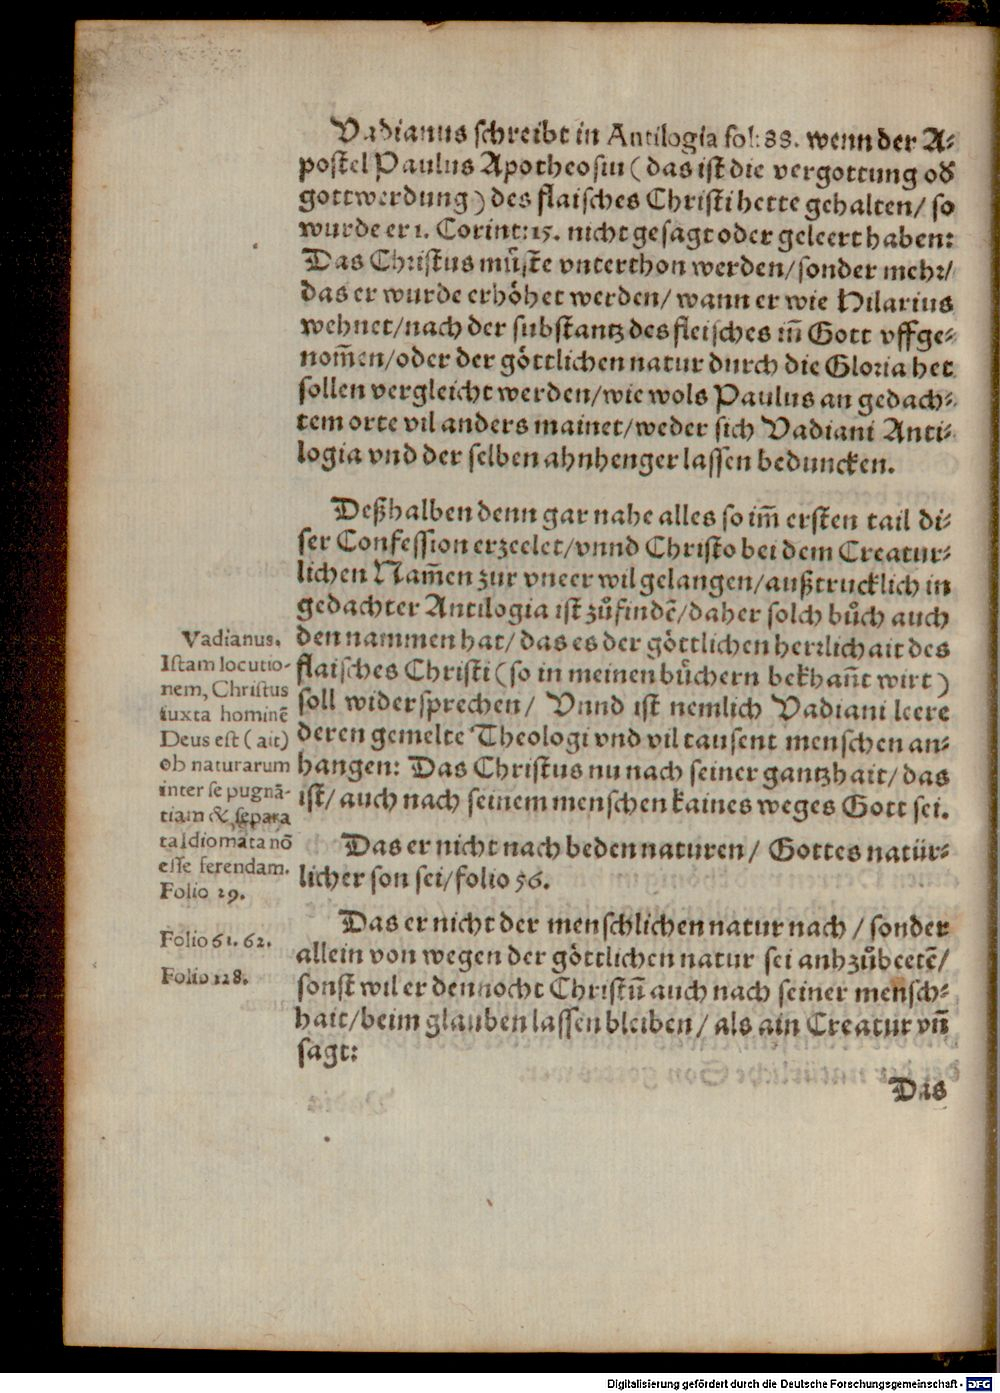 Vadianus schreibt in Antilogia fol: 88. wenn der A⸗
postel Paulus Apotheosin ( das ist die vergottung od̕
gottwerdung ) des flaisches Christi hette gehalten/ so
wurde er 1. Corint: 15. nicht gesagt oder geleert haben:
Das Christus můste vnterthon werden/ sonder mehr/
das er wurde erhöhet werden/ wann er wie Hilarius
wehnet/ nach der substantz des fleisches im̄ Gott vffge⸗
nom̄en/ oder der göttlichen natur durch die Gloria het
sollen vergleicht werden/ wie wols Paulus an gedach⸗
tem orte vil anders mainet/ weder sich Vadiani Anti⸗
logia vnd der selben ahnhenger lassen beduncken.
Deßhalben denn gar nahe alles so im̄ ersten tail di⸗
ser Confession erzeelet/ vnnd Christo bei dem Creatur⸗
lichen Nam̄en zur vneer wil gelangen/ außtrucklich in
gedachter Antilogia ist zůfindē/ daher solch bůch auch
den nammen hat/ das es der göttlichen herrlichait des
flaisches Christi ( so in meinen bůchern bekhañt wirt )
soll widersprechen/ Vnnd ist nemlich Vadiani leere
deren gemelte Theologi vnd vil tausent menschen an⸗
hangen: Das Christus nu nach seiner gantzhait/ das
ist/ auch nach seinem menschen kaines weges Gott sei.
Das er nicht nach beden naturen/ Gottes natür⸗
licher son sei/ folio 56.
Das er nicht der menschlichen natur nach / sonder
allein von wegen der göttlichen natur sei anhzůbeetē/
sonst wil er dennocht Christū auch nach seiner mensch⸗
hait/ beim glauben lassen bleiben/ als ain Creatur vñ
sagt:
Das
Vadianus.
Istam locutio-
nem, Christus
iuxta hominē
Deus est ( ait)
ob naturarum
inter se pugnā-
tiam & separa
ta Idiomata nō
esse ferendam.
Folio 29.
Folio 61. 62.
Folio 128.
Digitalisierung gefördert durch die Deutsche Forschungsgemeinschaft - DFG